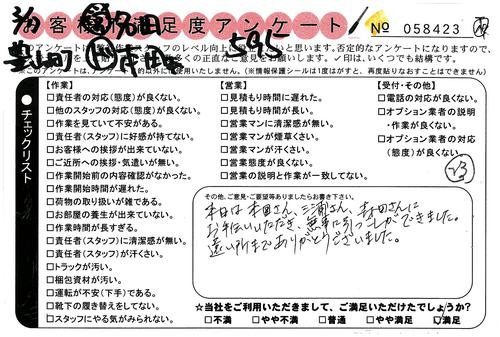 お客様満足度アンケート
№ 058423
チェックリスト
【作業】
□責任者の対応(態度)が良くない。
□他のスタッフの対応(態度)が良くない。
□作業を見ていて不安がある。
□責任者(スタッフ)に好感が持てない。
□お客様への挨拶が出来ていない。
□ご近所への挨拶・気遣いが無い。
□作業開始前の内容確認がなかった。
□作業開始時間が遅れた。
□荷物の取り扱いが雑である。
□お部屋の養生が出来ていない。
□作業時間が長すぎる。
□責任者(スタッフ)に清潔感が無い。
□責任者(スタッフ)が汗くさい。
□トラックが汚い。
□梱包資材が汚い。
□運転が不安(下手)である。
□靴下の履き替えをしてない。
□スタッフにやる気がみられない。
【営業】
□見積もり時間に遅れた。
□見積もり時間が長い。
□営業マンに清潔感が無い。
□営業マンが煙草くさい。
□営業マンが汗くさい。
□営業態度が良くない。
□営業の説明と作業が一致してない。
【受付・その他】
□電話の対応が良くない。
□オプション業者の説明
・作業が良くない。
□オプション業者の対応
(態度)が良くない。
その他、ご意見・ご要望等ありましたらお書き下さい。
本日は本田さん、三浦さん、森田さんに
お手伝いいただき、無事に引っこしができました。
遠い所までありがとうございました。
☆当社をご利用いただきまして、ご満足いただけたでしょうか?
□不満 □やや不満 □普通 □やや満足 ☑満足